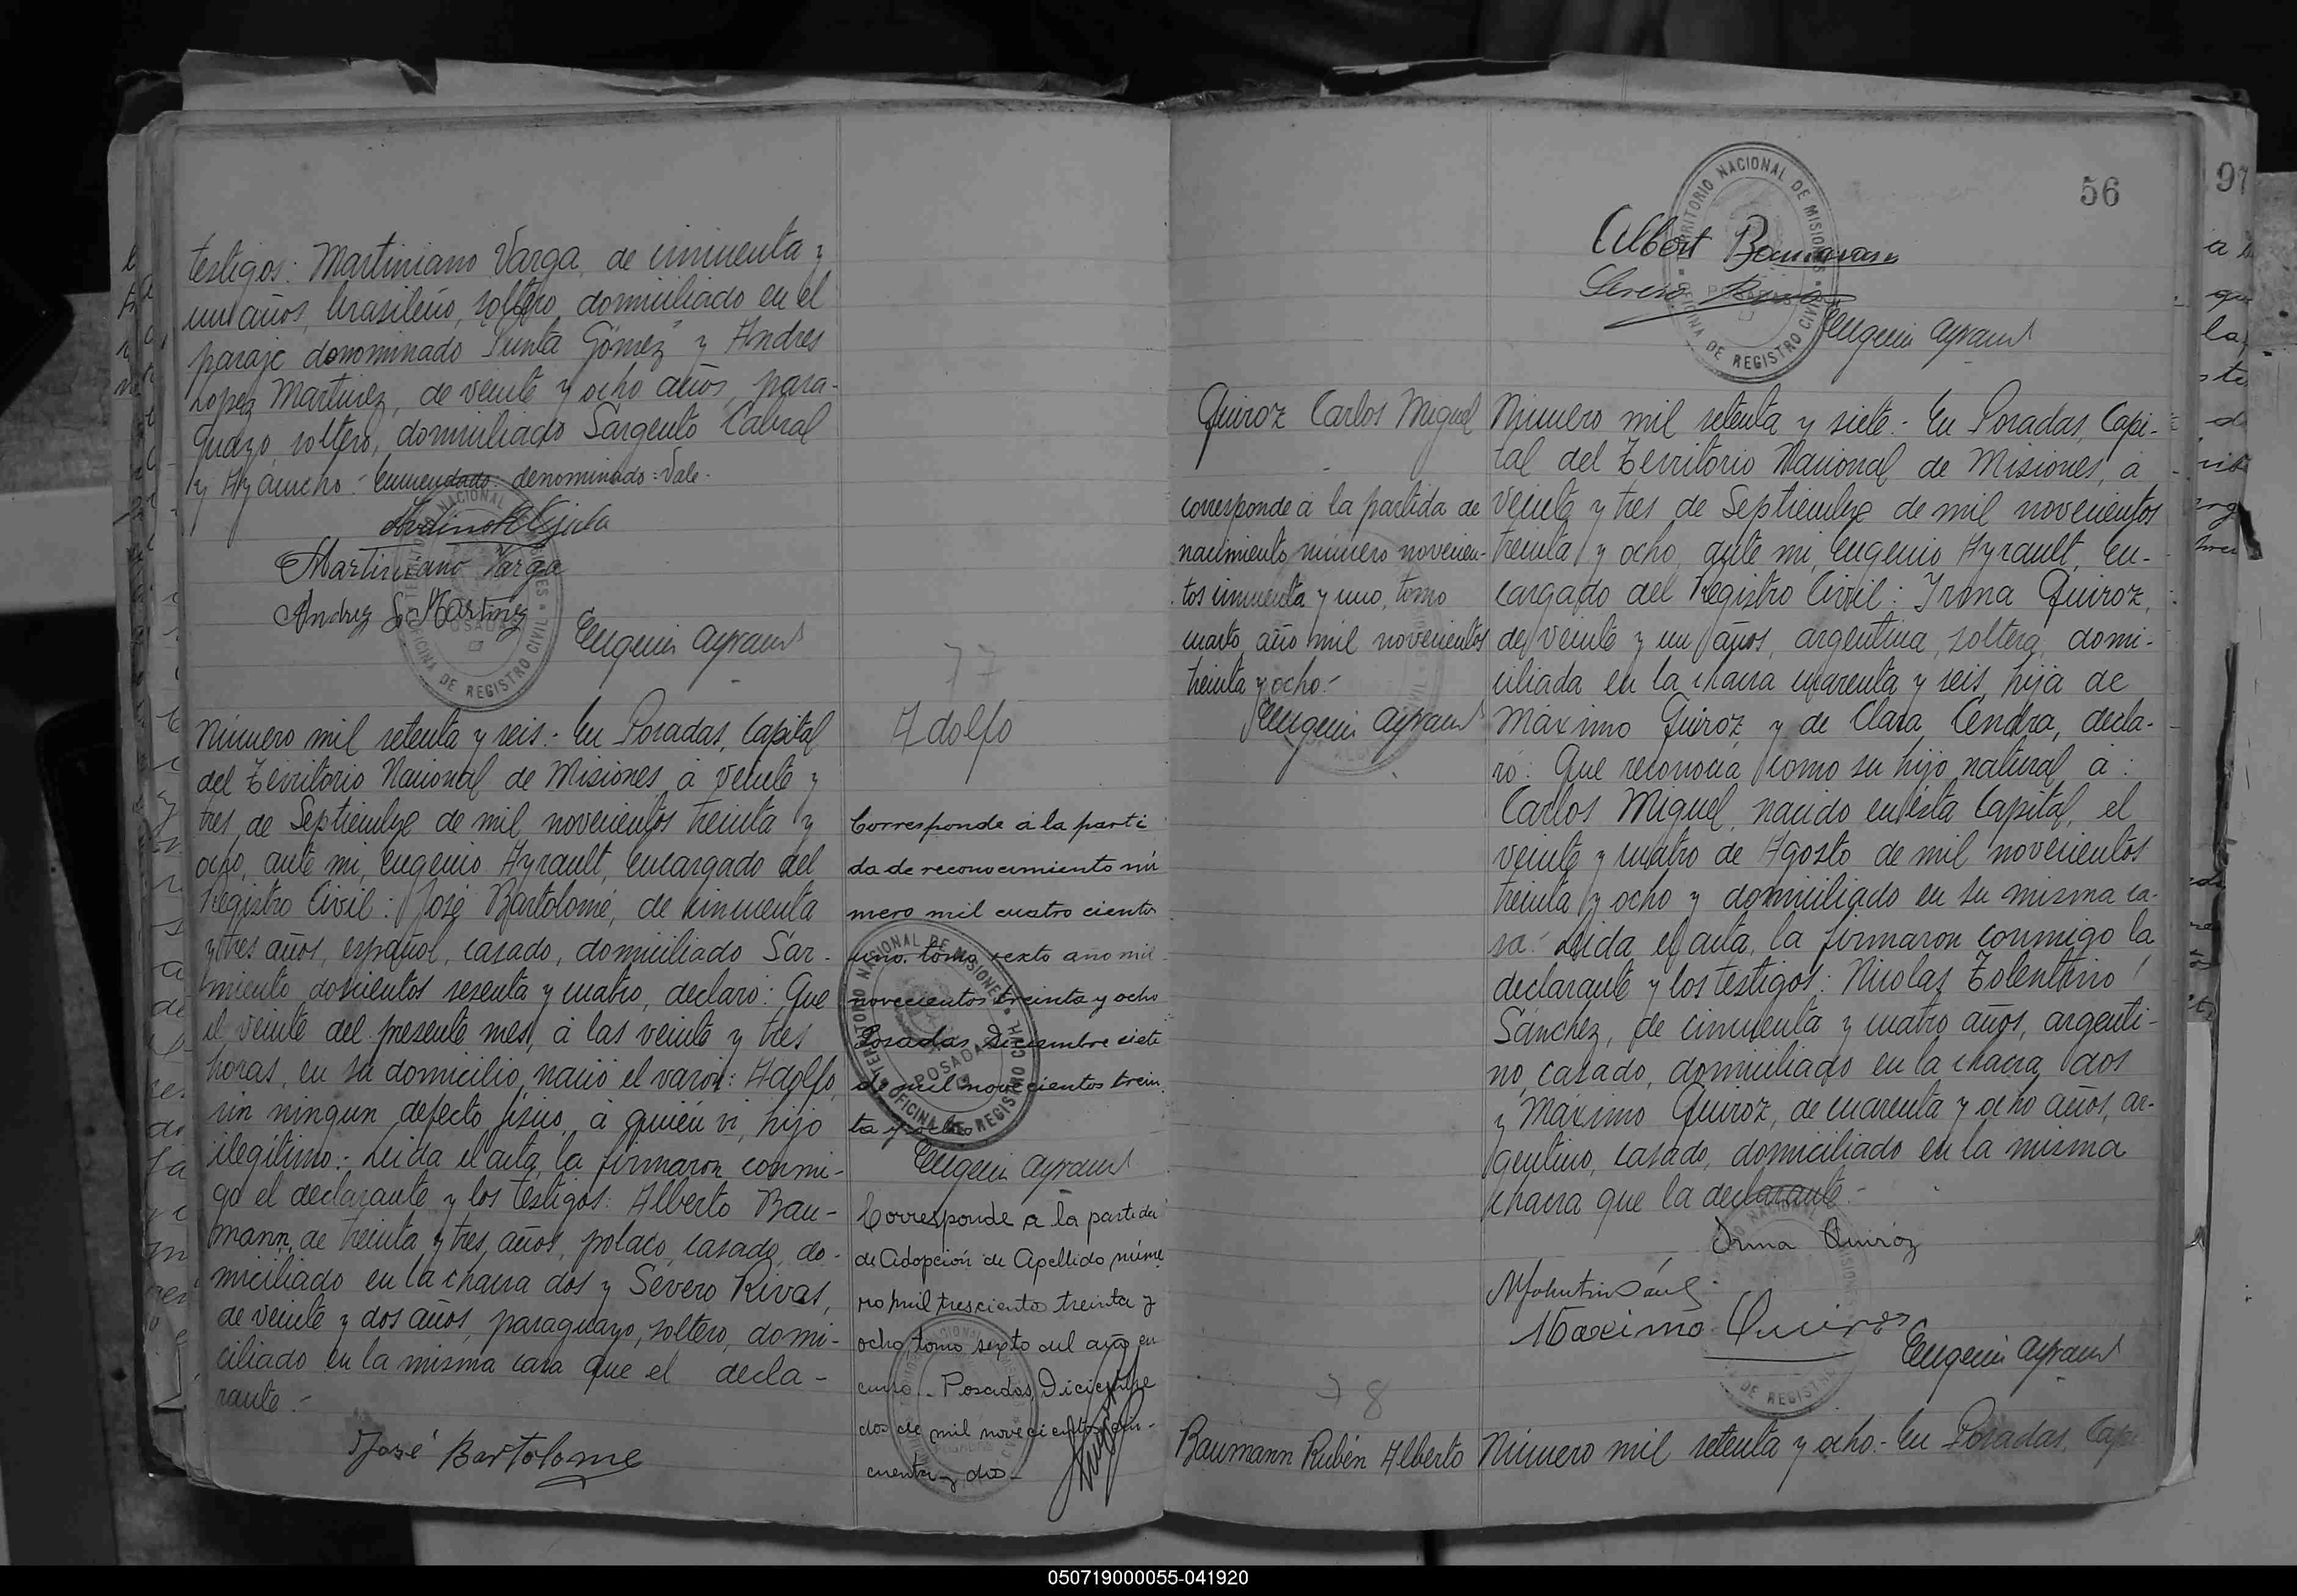 testigos: Martiniano Varga, de cincuenta y
un años, brasileño, soltero, domiciliado en el
paraje donominado "Punta Gómez" y Andres
Lopez Martinez, de veinte y ocho años, para-
guayo, soltero, domiciliado Sargento Cabral
y Ayacucho.- Enmendado: denominado: Vale.-
Martiniano Varga
Andrez L. Martinez
Eugenio Ayrault
77
Número mil setenta y seis.- En Posadas, Capital
del Territorio Nacional de Misiones, á veinte y
tres de Septiembre de mil novecientos treinta y
ocho, ante mi, Eugenio Ayrault, Encargado del
Registro Civil: José Bartolomé, de cincuenta
y tres años, español, casado, domiciliado Sar-
miento doscientos sesenta y cuatro, declaró: Que
el veinte del presente mes, á las veinte y tres
horas, en su domicilio, nació el varon: Adolfo,
sin ningun defecto fisico, á quién vi, hijo
ilegítimo.- Leida el acta, la firmaron conmi-
go el declarante y los testigos: Alberto Bau-
mann, de treinta y tres años, polaco, casado, do-
miciliado en la chacra dos y Severo Rivas,
de veinte y dos años, paraguayo, soltero, domi-
ciliado en la misma casa que el decla-
rante.-
José Bartolome
Adolfo
Corresponde á la parti
da de reconocimiento nú
mero mil cuatro ciento
uno. tomo sexto año mil
novecientos treinta y ocho
Posadas, Diciembre siete
de mil novecientos trein
ta y ocho
Eugenio Ayrault
Corresponde a la partida
de Adopción de Apellido núme
ro mil trescientos treinta y
ocho, tomo sexto del año en
curso.- Posadas, Diciembre
dos de mil novecientos cin-
cuenta y dos-
TERRITORIO NACIONAL DE MISIONES
OFICINA DE REGISTRO CIVIL
POSADAS
56
97
Albert Baumann
Severo Rivas
Eugenio Ayrault
Quiroz Carlos Miguel
corresponde á la partida de
nacimiento número novecien-
tos cincuenta y uno, tomo
cuarto, año mil novecientos
treinta y ocho.-
Eugenio Ayrault
Número mil setenta y siete.- En Posadas, Capi-
tal del Territorio Nacional de Misiones, á
veinte y tres de Septiembre de mil novecientos
treinta y ocho, ante mi, Eugenio Ayrault, En-
cargado del Registro Civil: Irma Quiroz,
de veinte y un años, argentina, soltera, domi-
ciliada en la chacra cuarenta y seis, hija de
Máximo Quiroz y de Clara Cendra, decla-
ró: Que reconocia como su hijo natural á:
Carlos Miguel, nacido en ésta Capital, el
veinte y cuatro de Agosto de mil novecientos
treinta y ocho y domiciliado en su misma ca-
sa.- Leida el acta, la firmaron conmigo la
declarante y los testigos: Nicolas Tolentino
Sánchez, de cincuenta y cuatro años, argenti-
no, casado, domiciliado en la chacra dos
y Máximo Quiroz, de cuarenta y ocho años, ar-
gentino, casado, domiciliado en la misma
chacra que la declarante.-
Irma Quiroz
Maximo Quiroz
Eugenio Ayrault
78
Baumann Rubén Alberto
Número mil setenta y ocho.- En Posadas, Capi
050719000055-041920